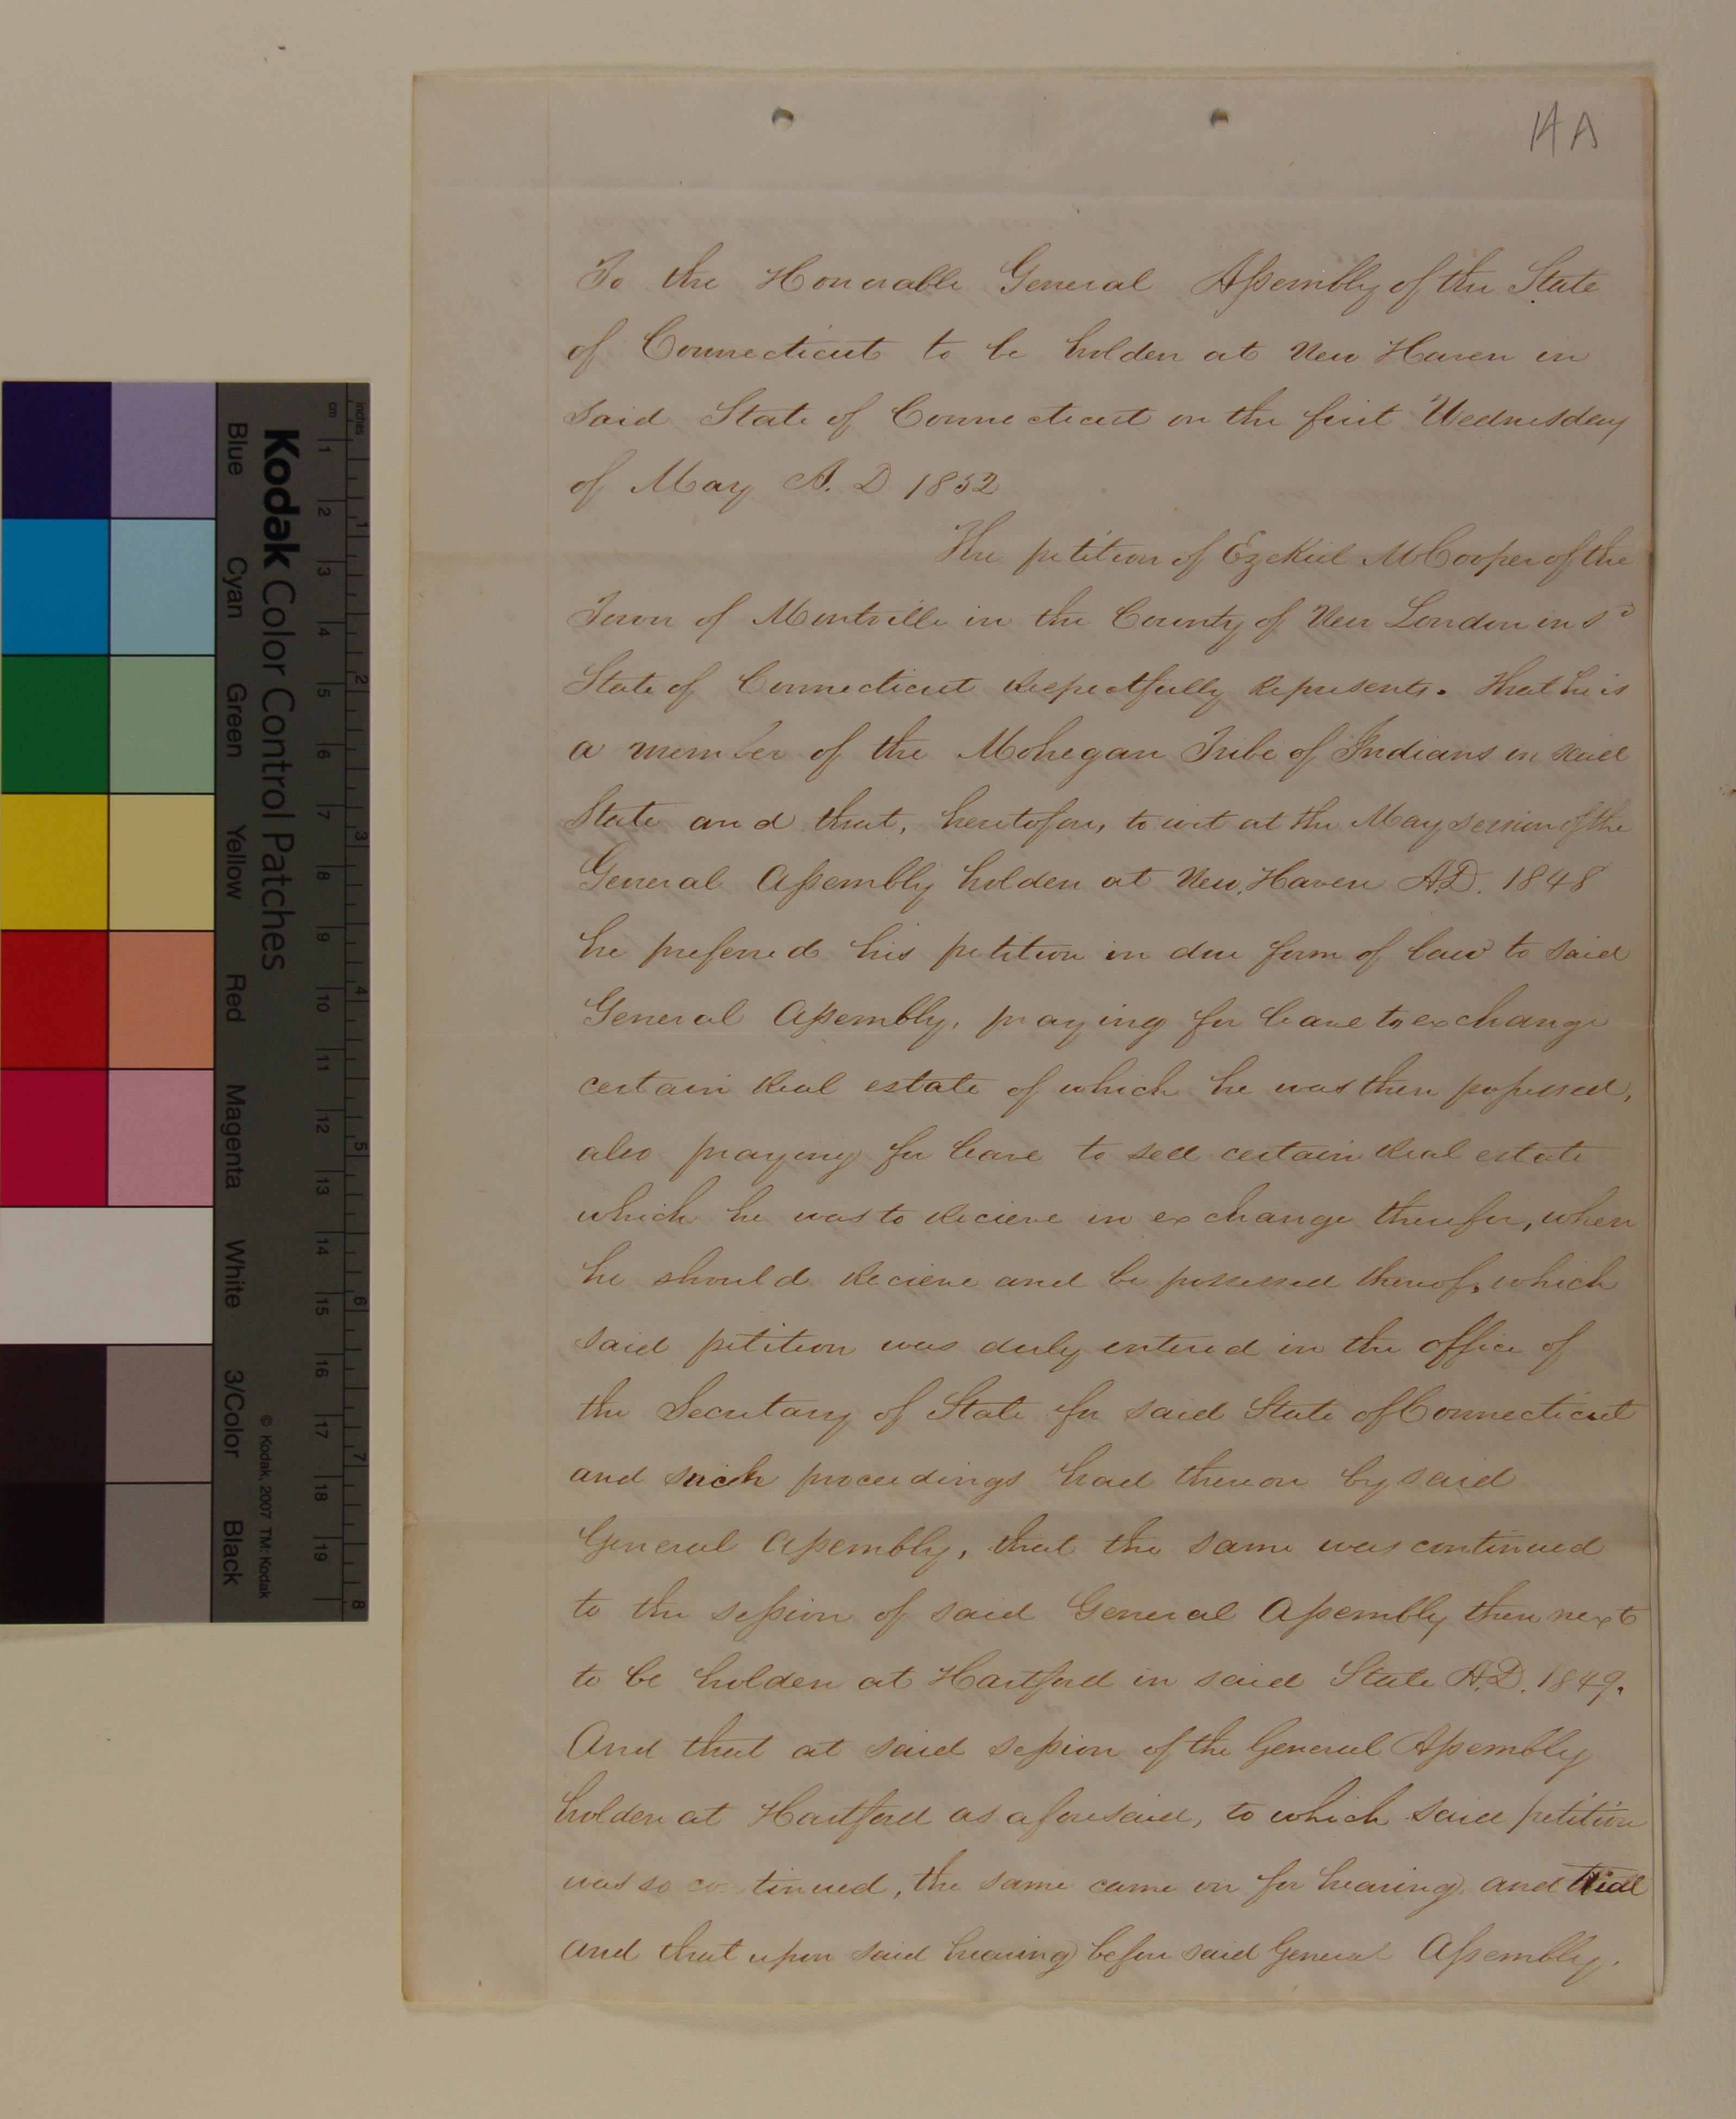 14 A
To the Honorable General Assembly of the State
of Connecticut to be holden at New Haven in
said State of Connecticut on the first Wednesday
of May A. D 1852
The petition of Ezekiel M Cooper of the
Town of Montville in the County of New London in sd
State of Connecticut Respectfully Represents. That he is
a member of the Mohegan Tribe of Indians in said
State and that, heretofore, to wit at the May session of the
General Assembly holden at New Haven A.D. 1848
he preferred his petition in due form of law to said
General Assembly, praying for leave to exchange
certain Real estate of which he was then possessed,
also praying for leave to sell certain Real estate
which he was to Recieve in exchange therefor, when
he should Recieve and be possessed thereof, which
said petition was duly entered in the office of
the Secretary of State for said State of Connecticut
and such proceedings had thereon by said
General Assembly, that the same was continued
to the session of said General Assembly then next
to be holden at Hartford in said State A.D. 1849.
And that at said session of the General Assembly
holden at Hartford as aforesaid, to which said petition
was so continued, the same came on for hearing and trial
and that upon said hearing before said General Assembly.
Kodak Color Control Patches
Blue Cyan Green Yellow Red Magenta White 3/Color Black
© Kodak, 2007 TM: Kodak
inches 1 2 3 4 5 6 7 8
cm 1 2 3 4 5 6 7 8 9 10 11 12 13 14 15 16 17 18 19